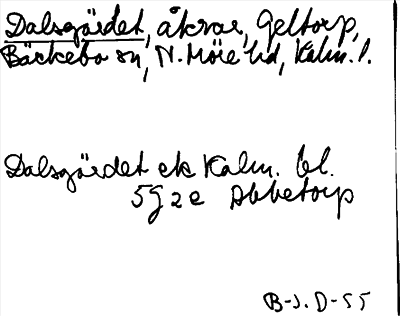 Dalsgärdet, åkrar, Geltorp,
Bäckebo sn, N. Möre hd, Kalm. l.
Dalsgärdet ek Kalm. bl.
5G2e Abbetorp
B-J. D-55